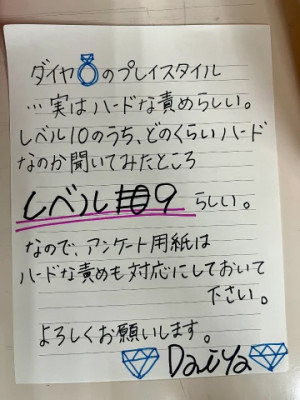 ダイヤ💍のプレイスタイル
…実はハードな責めらしい。
レベル10のうち、どのくらいハード
なのか聞いてみたところ
レベル9 らしい。
なので、アンケート用紙は
ハードな責めも対応にしておいて
下さい。
よろしくお願いします。
Daiya